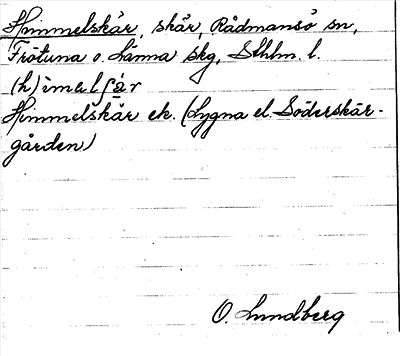 Himmelskär, skär, Rådmansö sn,
Frötuna o. Länna skg, Sthlm. l.
(h)imelʃä̀r
Himmelskär ek. (Lygna el. Söderskär-
gården)
O. Lundberg